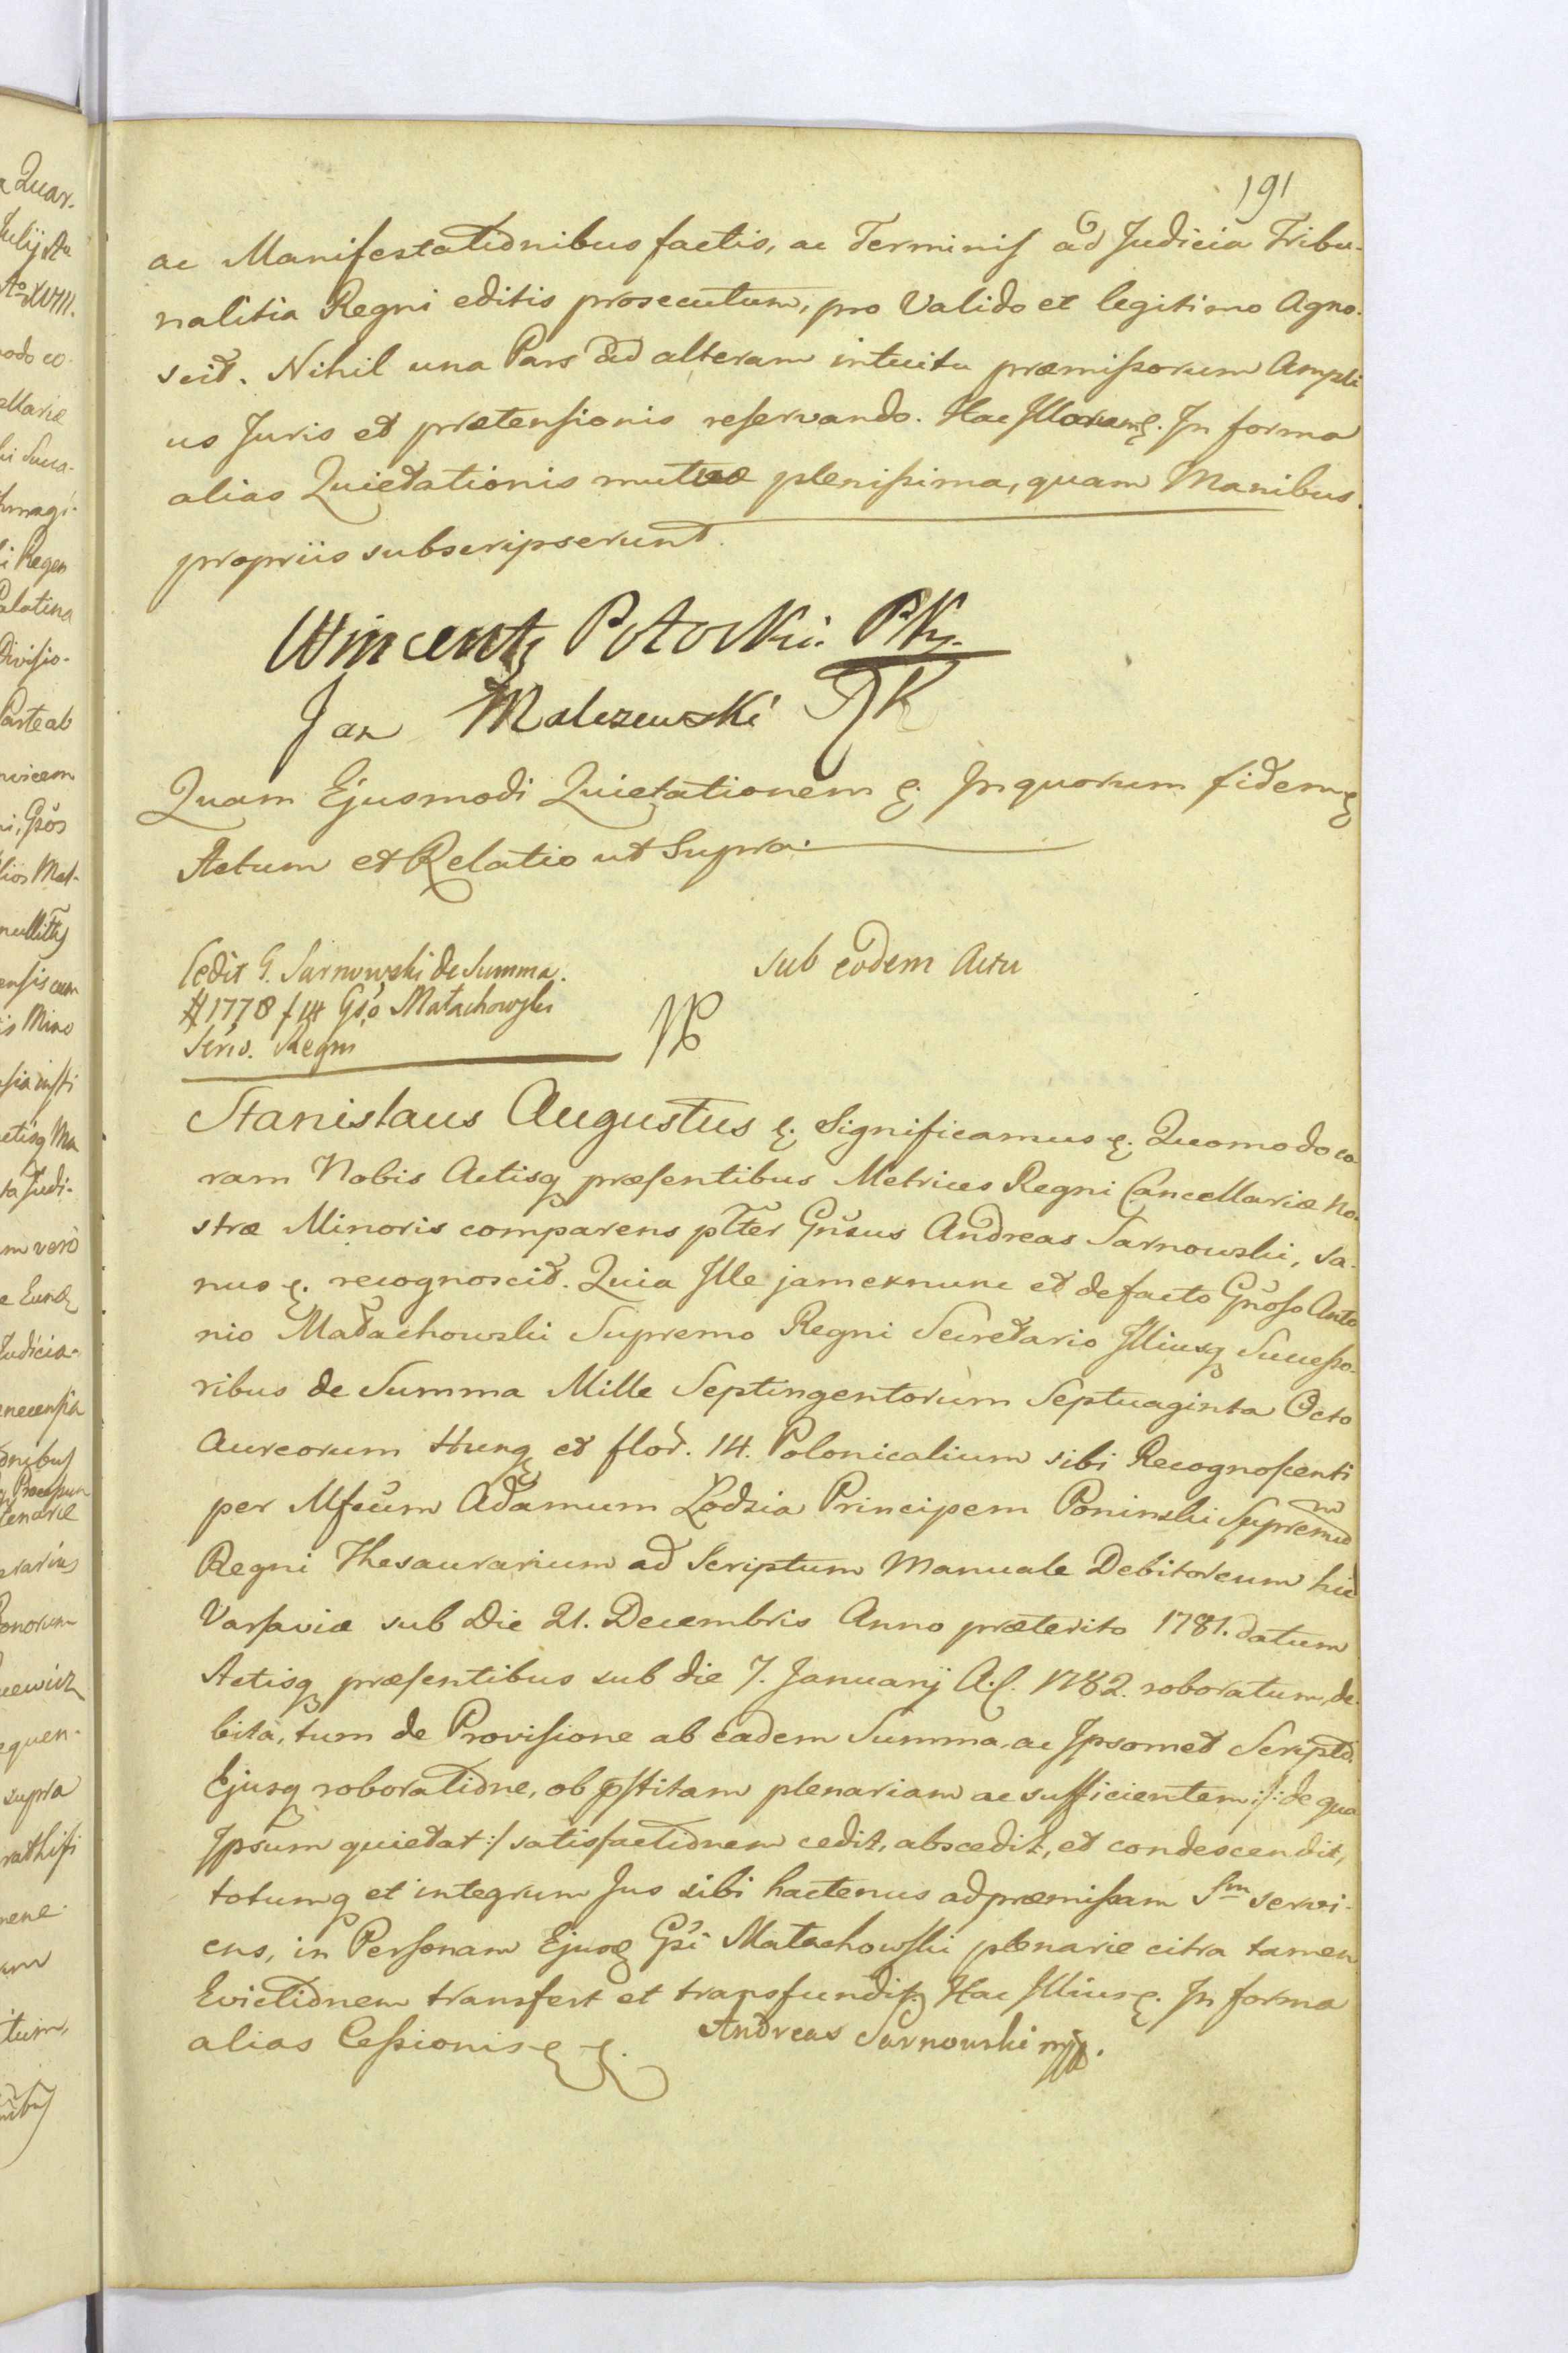 191
ac Manifestationibus factis, ac Terminis ad Judicia Tribu-
nalitia Regni editis prosecutum, pro Valido et legitimo Agno-
scit. Nihil una Pars ad alteram intuitu præmissorum Ampli
us Juris et prætensionis reservando. Hac Illorum &. In forma
alias Quietationis mutuæ plenissima, quam Manibus
propriis subscripserunt.
Wincenty Potocki PKy.
Jan Maleszewski
Quam Ejusmodi Quietationem &. In quorum fidem &
Actum et Relatio ut Supra.
Cedit G. Sarnowski de Summa
# 1778 f 14 Gso Małachowski
Secrio. Regni
sub eodem Actu
Stanislaus Augustus &. Significamus &. Quomodo co-
ram Nobis Actisq præsentibus Metrices Regni Cancellariæ No-
stræ Minoris comparens plter Gnsus Andreas Sarnowski, sa-
nus &. recognoscit. Quia Ille jam exnunc et de facto Gnoso Anto
nio Małachowski Supremo Regni Secretario Illiusq Successo-
ribus de Summa Mille Septingentorum Septuaginta Octo
Aureorum Hung et flor. 14. Polonicalium sibi Recognoscenti
per Mfcum Adamum Łodzia Principem Poninski Supremum
Regni Thesaurarium ad Scriptum Manuale Debitoreum hic
Varsaviæ sub Die 21. Decembris Anno præterito 1781. datum
Actisq præsentibus sub die 7. Januarij A.C. 1782. roboratum, de-
bita, tum de Provisione ab eadem Summa, ac Ipsomet Scripto
Ejusq roboratione, ob pstitam plenariam ac sufficientem :/: de qua
Ipsum quietat :/ satisfactionem cedit, abscedit, et condescendit,
totumq et integrum Jus sibi hactenus ad præmissam Sm servi-
ens, in Personam Ejusd Gsi Małachowski plenarie citra tamen
Evictionem transfert et transfundit. Hac Illius &. In forma
alias Cessionis & &. Andreas Sarnowski mp.